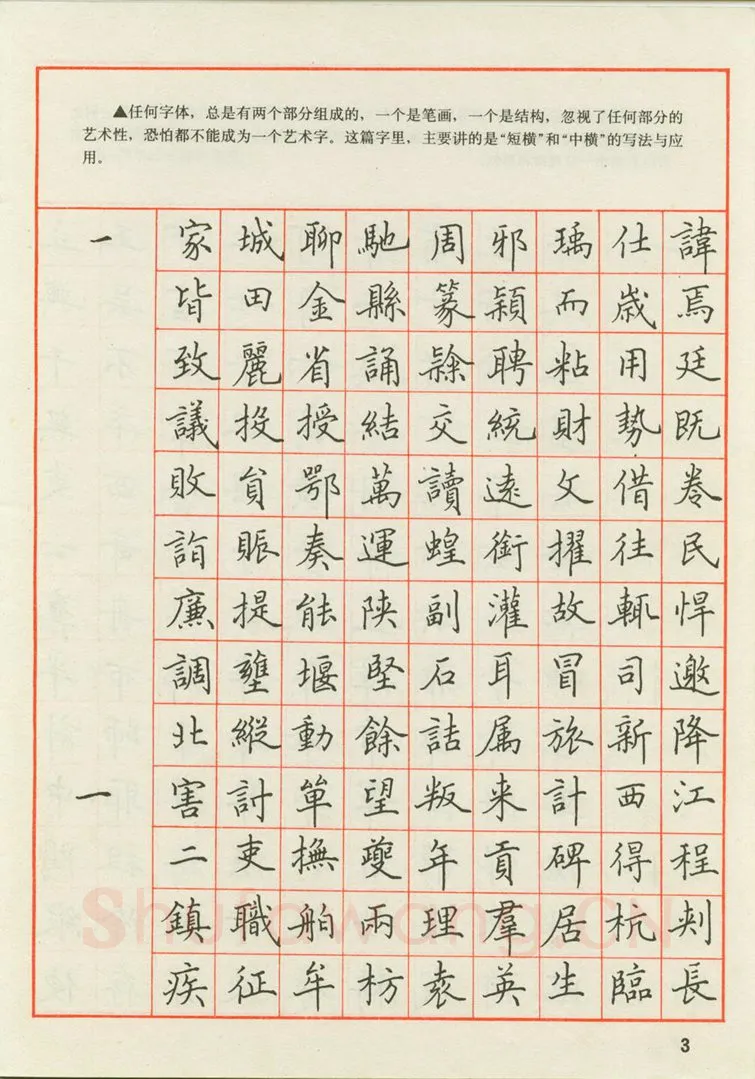 ▲任何字体，总是有两个部分组成的，一个是笔画，一个是结构，忽视了任何部分的
艺术性，恐怕都不能成为一个艺术字。这篇字里，主要讲的是“短横”和“中横”的写法与应
用。
一 家 城 聊 馳 周 邪 瑀 仕 諱
皆 田 金 縣 篆 穎 而 歲 焉
致 麗 省 誦 聘 粘 用 廷
議 投 授 結 交 統 財 勢 既
敗 貟 鄂 萬 讀 遠 文 借 卷
詣 賑 奏 運 蝗 銜 擢 往 民
廉 提 能 陕 副 灌 故 輒 悍
調 壅 堰 堅 石 耳 冒 司 邀
北 縱 動 餘 詰 属 旅 新 降
一 害 討 單 望 叛 来 計 西 江
二 吏 撫 夔 年 貢 碑 得 程
鎮 職 舶 兩 理 羣 居 杭 刾
疾 征 牟 枋 袁 英 生 臨 長
Shufawang.CN
3